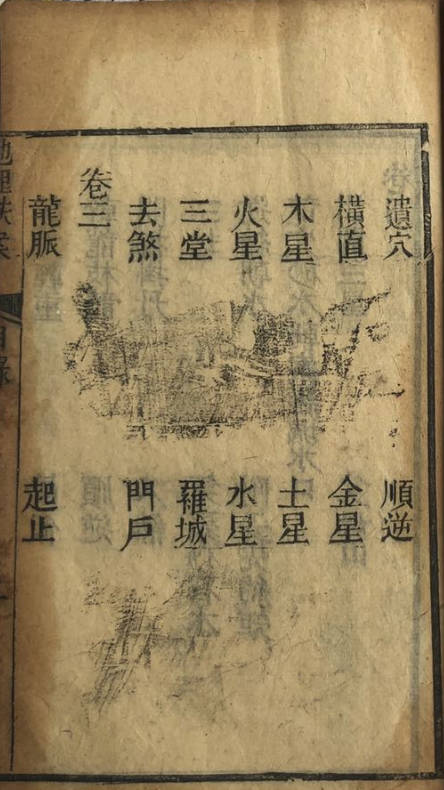 遺穴 順逆
橫直 金星
木星 土星
火星 水星
三堂 羅城
去煞 門戶
卷三
龍脈 起止
地理鉄案 目錄